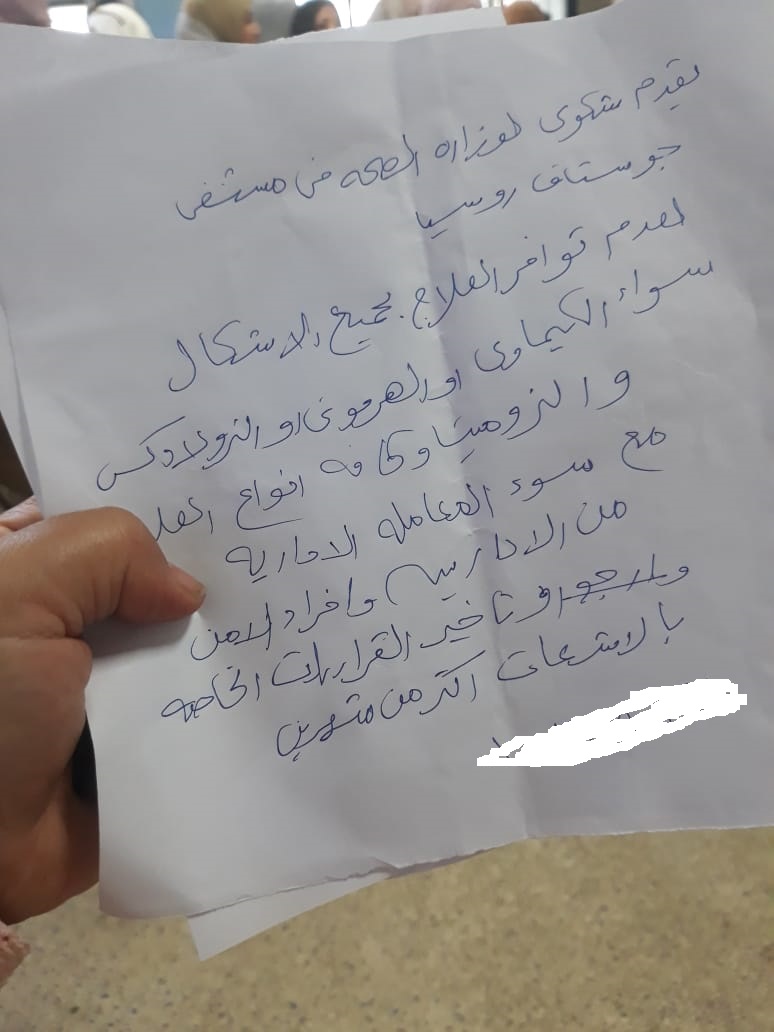 يقدم شكوى لوزاره الصحه فى مستشفى
جوستاف روسيا
لعدم توافر العلاج بجميع الاشكال
سواء الكيماوى او الهرمونى او الزولادكس
والزوميتا وكافه انواع العلا
مع سوء المعامله الاداريه
من الاداريين وافراد الامن
وتاخير القرارات الخاصه
بالاشعات اكتر من شهرين